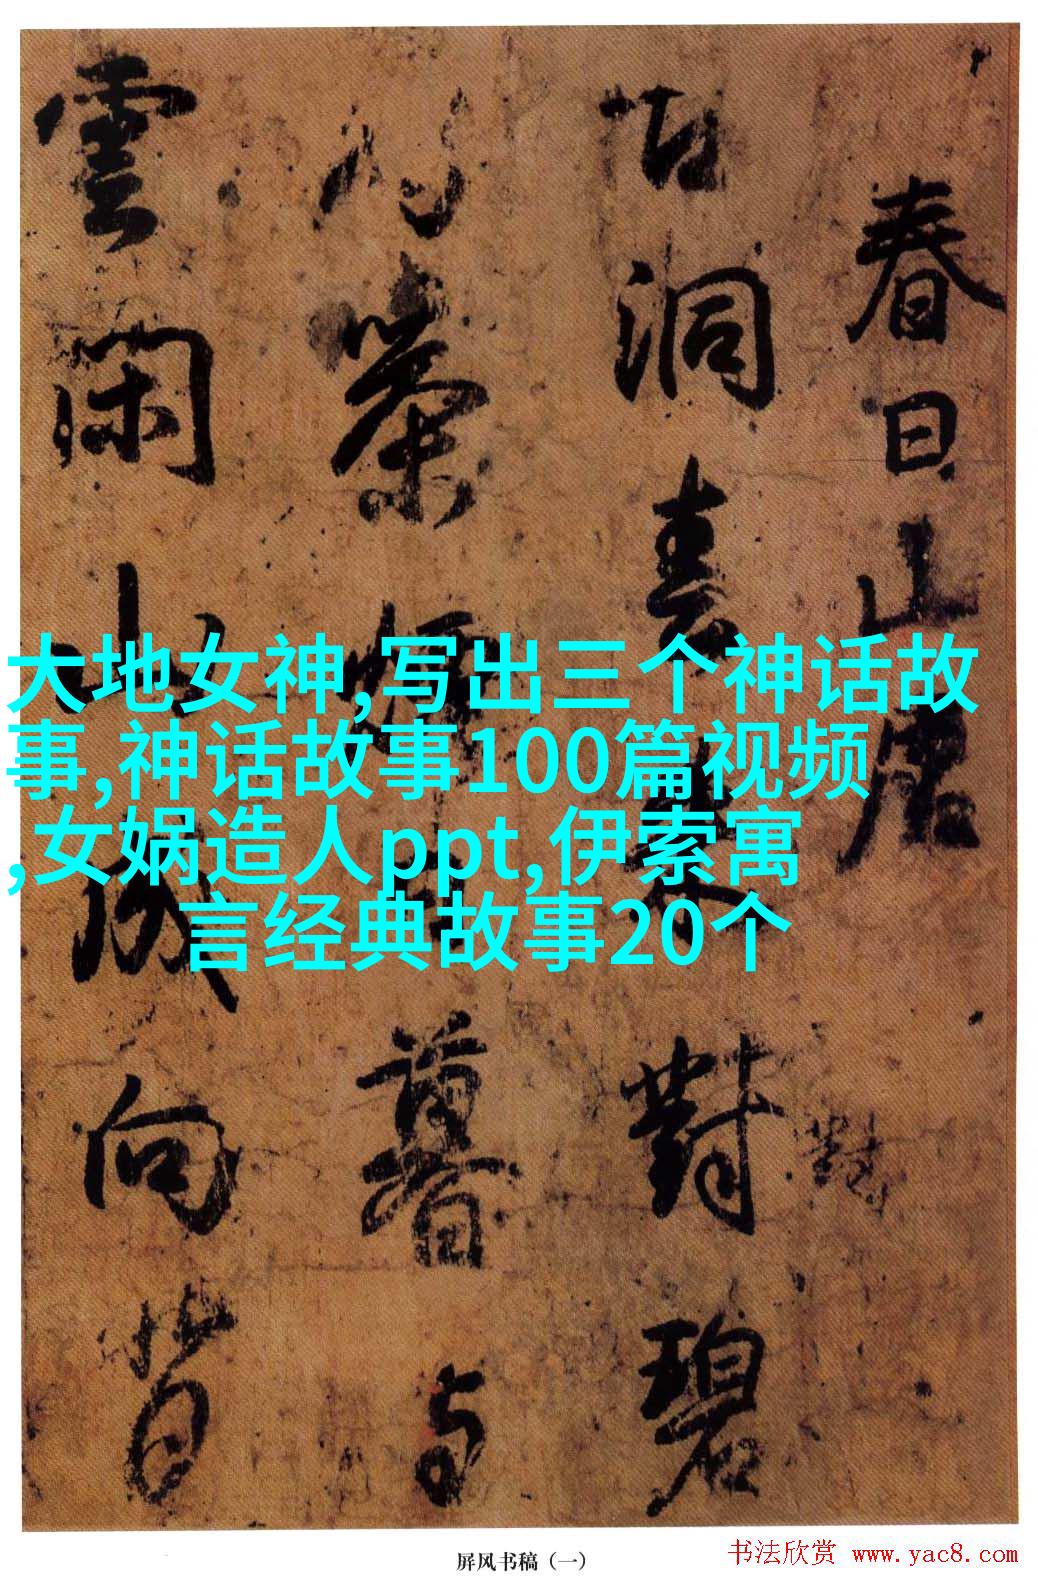 大地女神,写出三个神话故
事,神话故事100篇视频
,女娲造人ppt,伊索寓
言经典故事20个
春日山居
古洞春来對碧
對
暮与
雲闲山
向背
屏风书稿（一）
书法欣赏 www.yac8.com